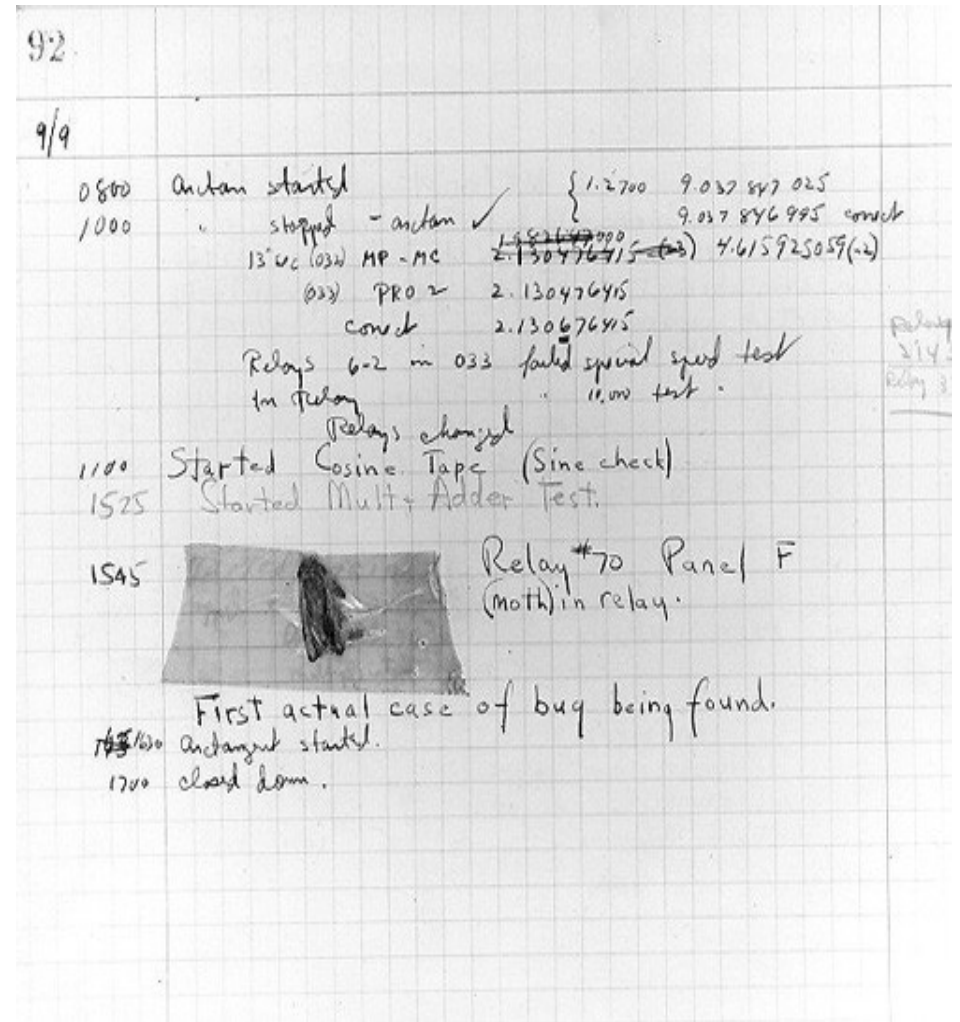 92
9/9
0800 Antan started
1000 " stopped - antan ✓ { 1.2700 9.037 847 025
9.037 846 995 correct
13"uc (032) MP - MC 2.130476415 (-3) 4.615925059(-2)
(033) PRO 2 2.130476415
correct 2.130676415
Relays 6-2 in 033 failed special speed test
In Relay " 10.000 test .
Relay
214
Relay 3
Relays changed
1100 Started Cosine Tape (Sine check)
1525 Started Mult+Adder Test.
1545 Relay #70 Panel F
(moth) in relay.
First actual case of bug being found.
1630 antangent started.
1700 closed down.